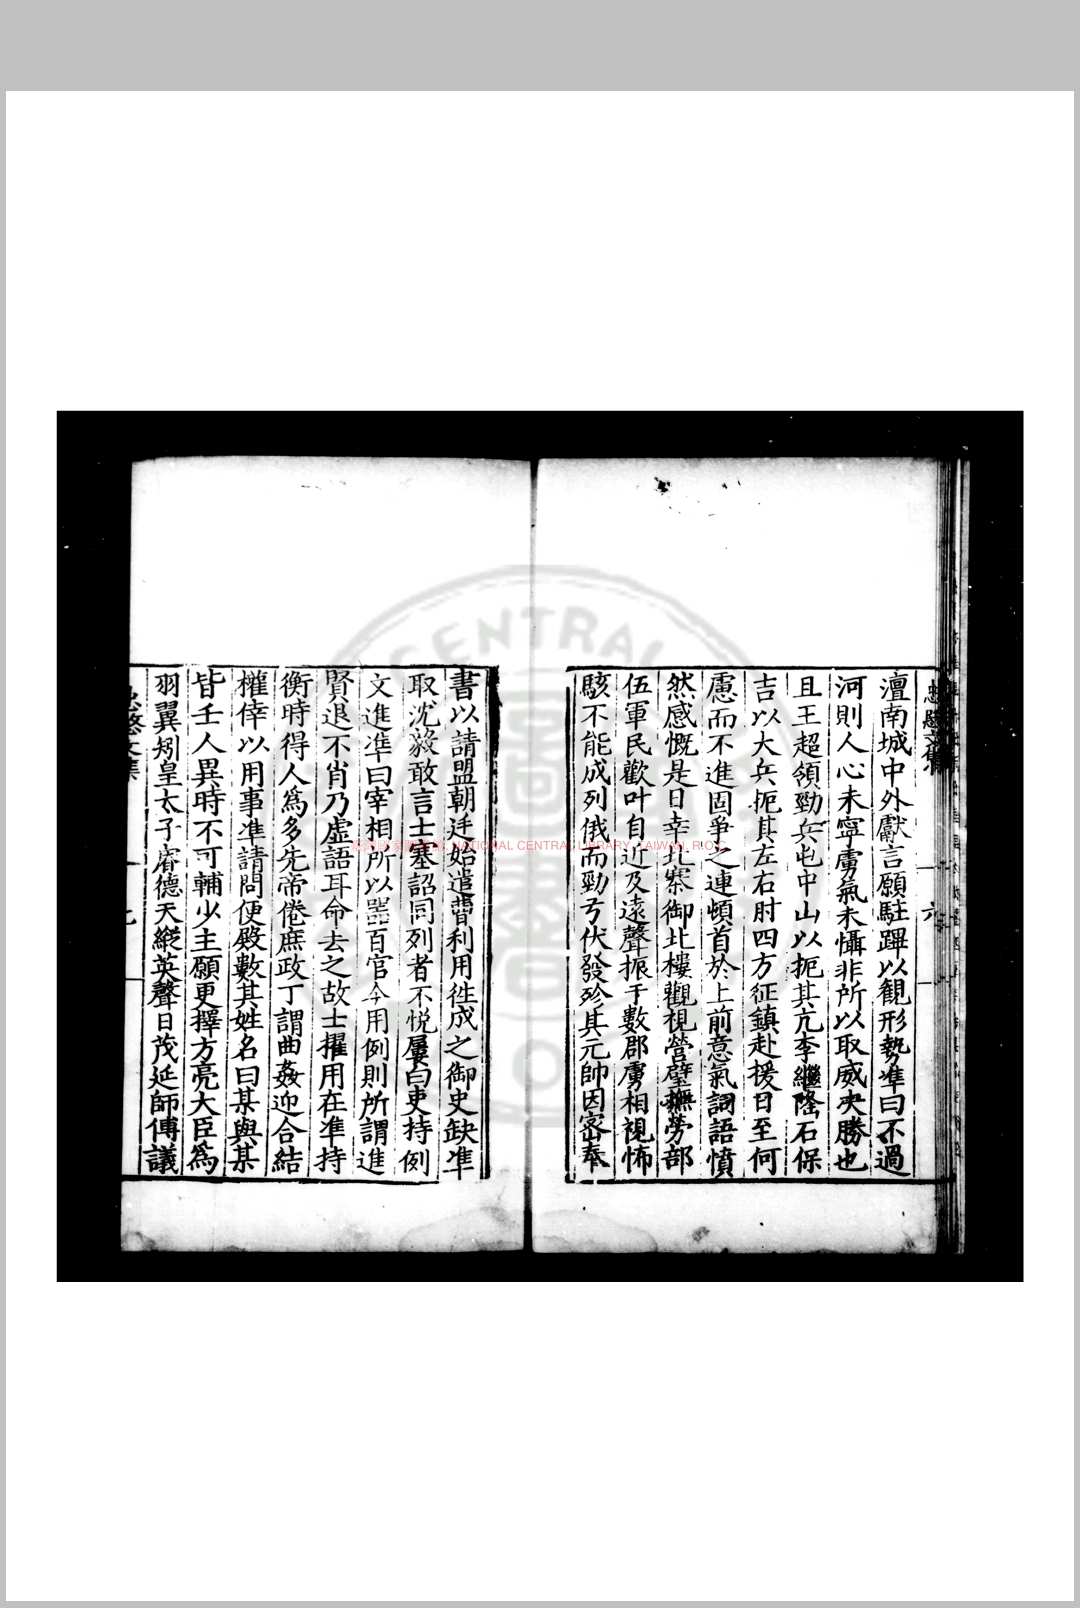 澶南城中外獻言願駐蹕以観形勢凖曰不過
河則人心未寧虜氣未懾非所以取威决勝也
且王超領勁兵屯中山以扼其亢李繼隆石保
吉以大兵扼其左右肘四方征鎮赴援日至何
慮而不進固爭之連頓首於上前意氣詞語憤
然感慨是日幸北寨御北樓觀視營壁撫勞部
伍軍民歡叶自近及遠聲振于數郡虜相視怖
駭不能成列俄而勁弓伏發殄其元帥因密奉
書以請盟朝廷始遣曹利用徃成之御史缺凖
取沈毅敢言士塞詔同列者不悦屢曰吏持例
文進凖曰宰相所以噐百官今用例則所謂進
賢退不肖乃虛語耳命去之故士擢用在凖持
衡時得人為多先帝倦庶政丁謂曲姦迎合結
權倖以用事凖請間便殿數其姓名曰某與某
皆壬人異時不可輔少主願更擇方亮大臣為
羽翼矧皇太子睿德天縱英聲日茂延師傅議
忠愍文集
六
NATIONAL CENTRAL LIBRARY, TAIWAN, R.O.C.
CENTRAL